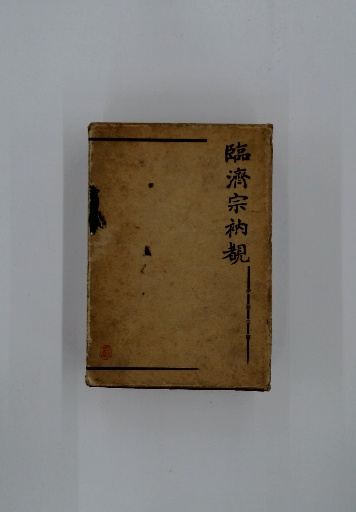 臨濟宗衲覩